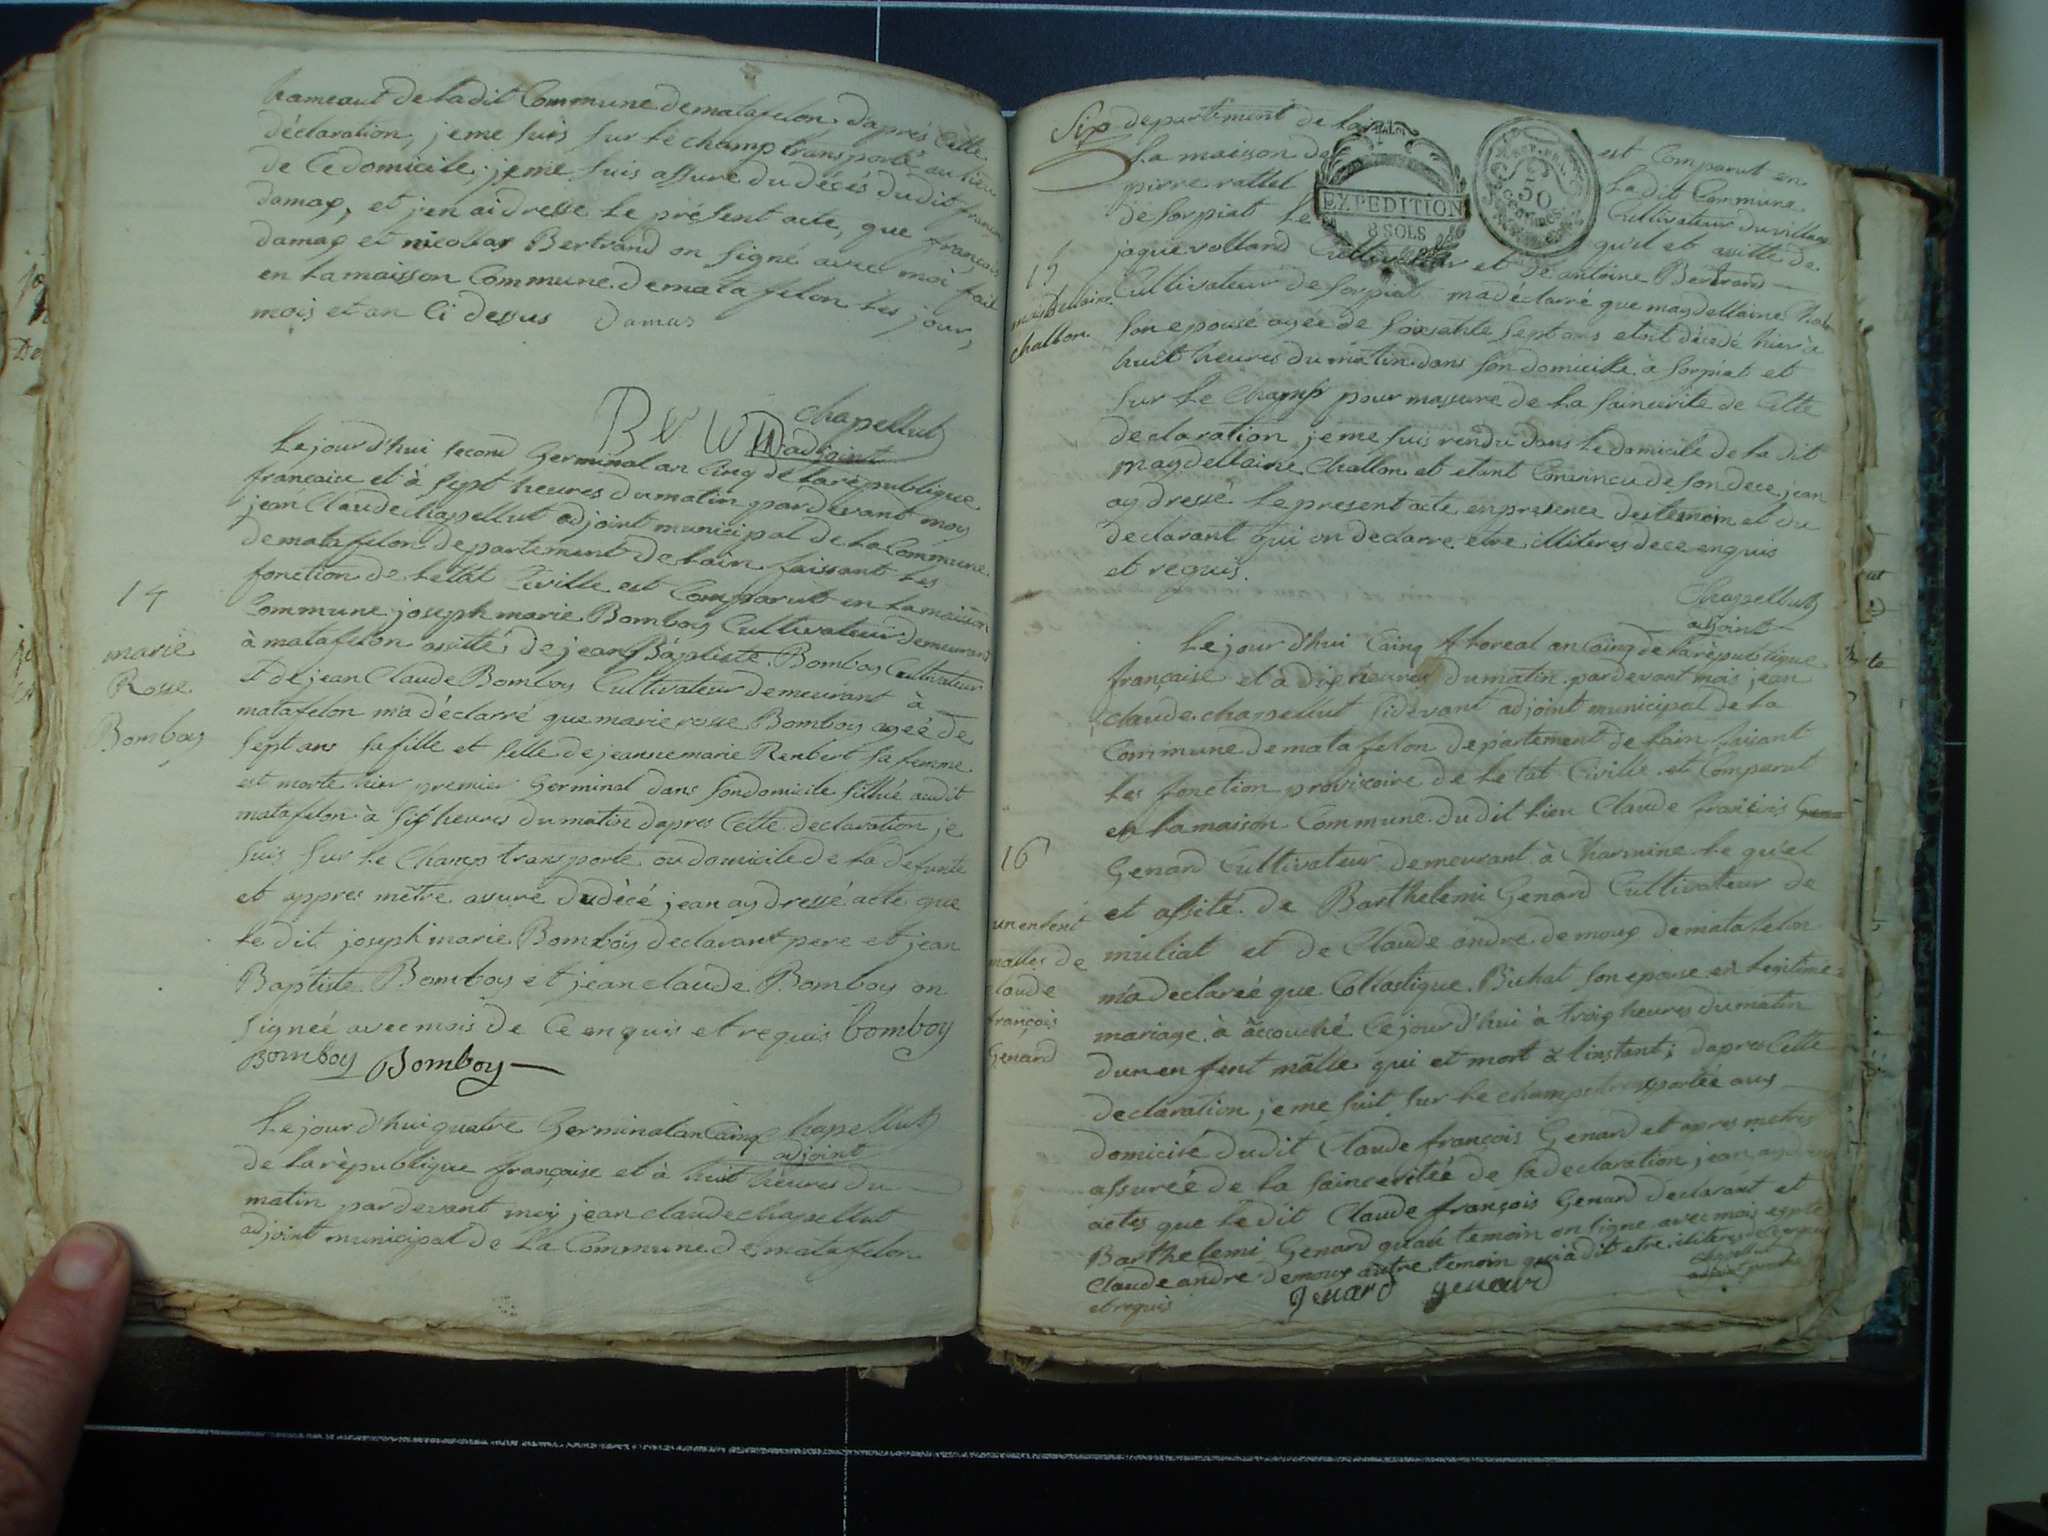 hameaut de ladit Commune de matafelon daprés Cette
déclaration, jeme suis sur le champ transporté au lieu
de Cedomicile, jeme suis assure du décés dudit françois
damas, et jen ai dresse le présent acte, que françois
damas et nicollas Bertrand on signé avec moi fait
en la maisson Commune de matafelon les jour,
mois et an Ci dessus Damas
chapellut
adjoint
Le jour d'hui second Germinal an Cinq de la république
francaise et à sept heures du matin pardevant moy
jean Claude chapellut adjoint municipal de la Commune
de matafelon departement de lain faissant les
fonction de letat Civille est Comparut en la maison
Commune joseph marie Bomboy Cultivateur demeurant
à matafelon assité de jean Baptiste Bomboy Cultivateur
& de jean Claude Bomboy Cultivateur demeurant à
matafelon m'a déclarré que marie rosse Bomboy ageé de
sept ans sa fille et selle de jeanne marie Renbert sa femme
est morte hier premier Germinal dans son domicile sittué audit
matafelon à six heures du matin dapres Cette declaration je
suis sur le Champ transporte au domicile de la defunte
et appres mêtre assuré du décé jean ay dressé acte que
le dit joseph marie Bomboy declarant pere et jean
Baptiste Bomboy et jean claude Bomboy on
signeé avec mois de Ce enquis et requis bomboy
Bomboy Bomboy
14
marie
Rosse
Bomboy
Le jour d'hui quatre Germinal an Cainq chapellut
adjoint
de la république française et à huit heures du
matin pardevant moy jean claude chapellut
adjoint municipal de la Commune de matafelon
Six departement de lain est Comparut en
la maison de ladit Commune
pirre rallet Cultivateur du village
de sorpiat le qu'el et assitté de
jaque volland Cultivateur et de antoine Bertrand
Cultivateur de sorpiat madéclarré que magdellaine
son epouse ageé de soixante sept ans etoit décedé hier à
huit heures du matin dans son domicille à sorpiat et
sur le Champ pour massure de la saincerite de Cette
declaration jeme suis rendu dans le domicile de la dit
magdellaine Challon et etant Convincu de son dece jean
ay dresse le present acte en presence des temoin et du
declarant qui on declarre etre illiteres de ce enquis
et requis.
15
magdellaine
challon.
Chapellut
adjoint
Le jour d'hui Cainq floreal an Cainq de la république
française et a dix heures du matin pardevant mois jean
claude chapellut sidevant adjoint municipal de la
Commune de matafelon departement de lain faisant
les fonction provisoire de letat Civille et Comparut
en la maison Commune dudit lieu Claude francois
Genard Cultivateur demeurant à Charmine le qu'el
et assité de Barthelemi Genard Cultivateur de
muliat et de Claude andre demoux de matafelon
m'a declareé que Collastique Bichat son epouse en legitime
mariage à accouché Cejour d'hui à trois heures du matin
dun enfent mâlle qui et mort à linstant; dapres Cette
declaration jeme suit sur le champ transporteé aux
domicile dudit Claude françois Genard et apres metres
assureé de la sainceriteé de sa declaration jean ay dresse
actes que ledit Claude françois Genard déclarant et
Barthelemi Genard temoin on signe avec mois
Claude andre demoux autre temoin qui a dit etre illiteres de ce enquis
et requis Genard genard
chapellut
16
un enfent
malles de
claude
françois
Genard
EXPEDITION
8 SOLS
50